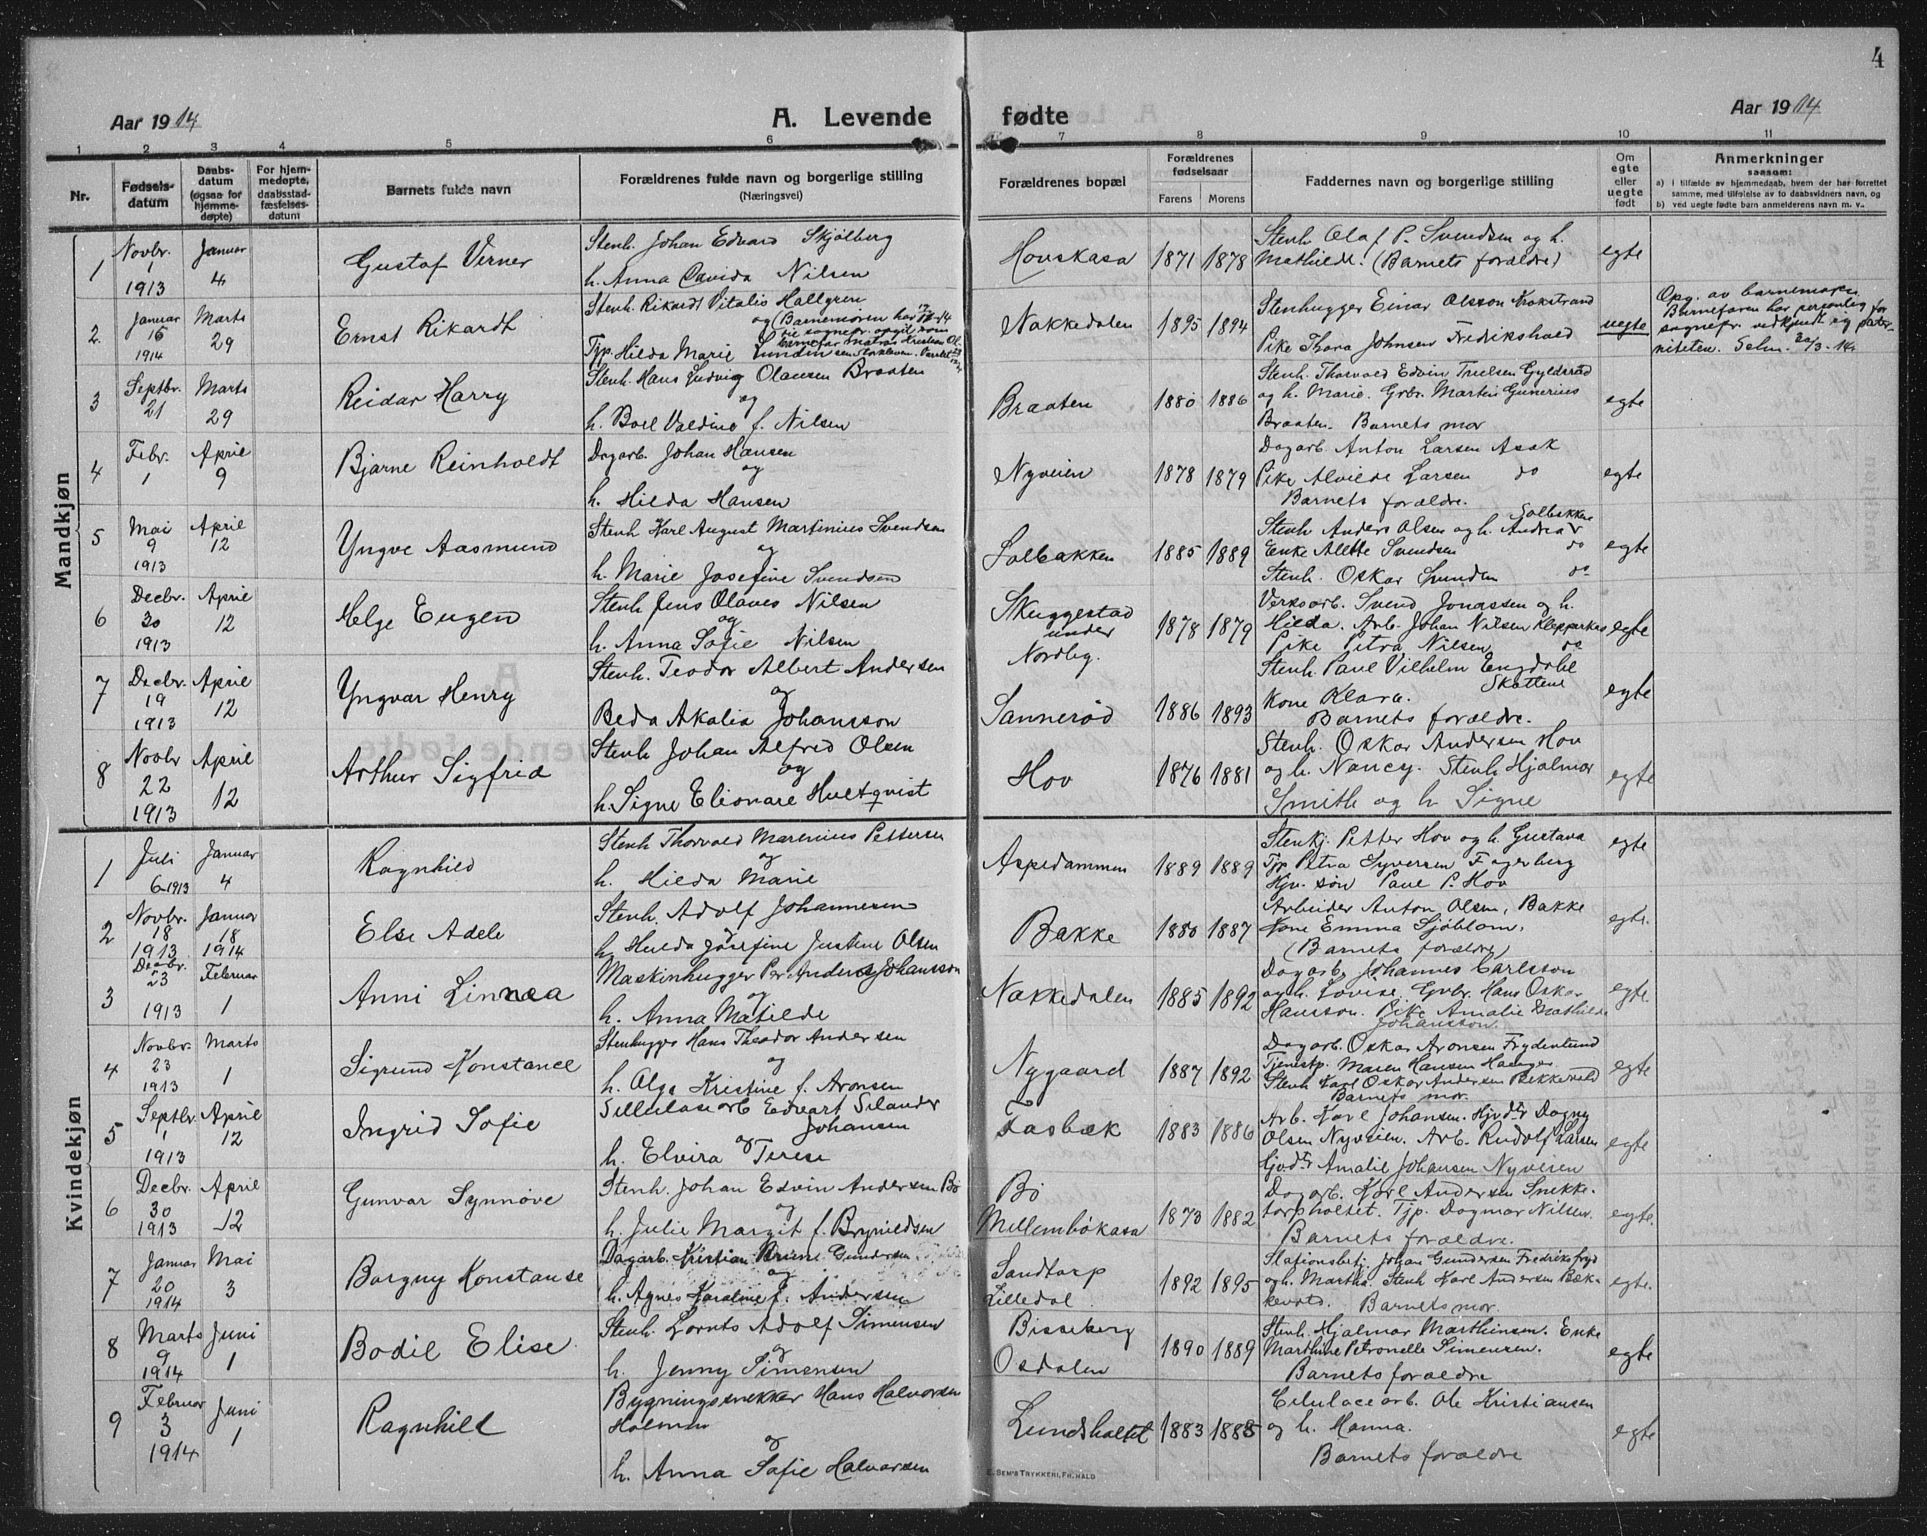 4
Aar 1914
A. Levende
fødte
Aar 1914
1 2 3 4 5 6 7 8 9 10 11
Nr.
Fødsels-datum
Daabs-datum (ogsaa for hjemme-døpte)
For hjem-medøpte, daabsstad-fæstelses-datum
Barnets fulde navn
Forældrenes fulde navn og borgerlige stilling
(Næringsvei)
Forældrenes bopæl
Forældrenes fødselsaar
Farens Morens
Faddernes navn og borgerlige stilling
Om egte eller uegte født
Anmerkninger
saasom:
a) i tilfælde av hjemmedaab, hvem der har forrettet samme, med tilføielse av to daabsvidners navn, og
b) ved uegte fødte barn anmelderens navn m. v.
Mandkjøn
1 Novbr. 1 1913 Januar 4 Gustaf Verner
Stenh. Johan Edvard Skjølberg
h. Anna Davida Nilsen
Hovskasa 1871 1878
Stenh. Olaf P. Svendsen og h.
Mathilde. (Barnets forældre)
egte
2. Januar 16 1914 Marts 29 Ernst Rikardt
Stenh. Rikardt Vitalis Hallgren
og (Barnemoren har
til sognepr. opgit som
barnefar
Tjp. Hilda Marie Lundin
Nakkedalen 1895 1894
Stenhugger Einar Olsson Kokstrand
Pike Thora Johnsen Fredrikshald
uegte
Opg. av barnemoren
Barnefaren har personlig for
sognepr. vedkjendt sig pater-
niteten. 20/3-14.
3 Septbr. 21 Marts 29 Reidar Harry
Stenh. Hans Ludvig Olausen Braaten
og
h. Boel Valdine f. Nilsen
Braaten 1880 1886
Stenh. Thorvald Edvin Truelsen
og h. Marie. Grbr. Martin Gunerius
Braaten. Barnets mor
egte
4 Febr. 1 April 9 Bjarne Reinholdt
Dagarb. Johan Hansen
og
h. Hilda Hansen
Nyveien 1878 1879
Dagarb. Anton Larsen Asak
Pike Alvilde Larsen do
Barnets forældre.
egte
5 Mai 9 1913 April 12 Yngve Aasmund
Stenh Karl August Martinius Svendsen
og
h. Marie Josefine Svendsen
Solbakken 1885 1889
Solbakken
Stenh. Anders Olsen og h. Andrea
Enke Alette Svendsen do
Stenh. Oskar do
egte
6 Decbr. 30 1913 April 12 Helge Eugen
Stenh. Jens Olaves Nilsen
og
h. Anna Sofie Nilsen
Skuggestad
under
Nordby.
1878 1879
Verksarb. Svend Jonassen og h.
Hilda. Arb. Johan Nilsen
Pike Petra Nilsen do
egte
7 Decbr. 19 1913 April 12 Yngvar Henry
Stenh. Teodor Albert Andersen
og
Beda Akalia Johansson
Sannerød 1886 1893
Stenh. Paul Vilhelm Engdahl
Skattene
Kone Klara.
Barnets forældre.
egte
8 Novbr 22 1913 April 12 Arthur Sigfrid
Stenh. Johan Alfred Olsen
og
h. Signe Elionare Hultqvist
Hov 1876 1881
Stenh. Oskar Andersen Hov
og h. Nancy. Stenh. Hjalmar
Smith og h. Signe
egte
Kvindekjøn
1 Juli 6 1913 Januar 4 Ragnhild
Stenh Thorvald Marenius Pettersen
og
h. Hilda Marie
Aspedammen 1889 1889
Stenhj. Petter Hov og h. Gustava
Tjp. Petra Syversen Fagerberg
Hjv. søn Paul P. Hov
egte
2 Novbr. 18 1913 Januar 18 1914 Else Adele
Stenh. Adolf Johannesen
h. Hulda Josefine Justine Olsen
Bakke 1880 1887
Arbeider Anton Olsen, Bakke
Kone Emma Sjöblom.
(Barnets forældre)
egte.
3 Decbr. 23 1913 Februar 1 Anni Linnea
Maskinhugger Per Anders Johansson
og
h. Anna Matilde
Nakkedalen 1885 1892
Dagarb. Johannes Carlsson
og h. Lovise. Grbr. Hans Oskar
Hansson. Pike Amalie Mathilde
Johansson.
egte.
4 Novbr. 23 1913 Marts 1 Sigrund Konstance
Stenhugger Hans Theodor Andersen
og
h. Olga Kristine f. Aronsen
Nygaard 1887 1892
Dagarb. Oskar Aronsen Frydenlund
Tjenestp. Maren Hansen
Stenh Karl Oskar Andersen Bekkevold
Barnets mor.
egte
5 Septbr. 1 1913 April 12 Ingrid Sofie
Cellulosearb Edvart Silander
Johansen
og
h. Elvira Terese
Fasbæk 1883 1886
Arb. Karl Johansen. Hjvdtr Dagny
Olsen Nyveien. Arb. Rudolf Larsen
Hjvdtr Amalie Johansen Nyveien
egte
6 Decbr. 30 1913 April 12 Gunvar Synnøve
Stenh. Johan Edvin Andersen Bø
og
h. Julie Margit f. Brynildsen
Bø
Mellembøkasa 1873 1882
Dagarb. Karl Andersen Snikke-
torpholtet. Tjp. Dagmar Nilsen.
Barnets forældre.
egte.
7 Januar 20 1914 Mai 3 Borgny Konstanse
Dagarb. Kristian Gundersen
og
h. Agnes Karoline f. Andersen
Sandtorp
Lilledal 1892 1895
Stationsbetj. Johan Gundersen Fredriksfryd
og h. Martha. Stenh Karl Andersen Bæk-
kevold. Barnets mor.
egte.
8 Marts 9 1914 Juni 1 Bodil Elise
Stenh. Lornts Adolf Simensen
og
h. Jenny Simensen
Bisseberg
Osdalen 1890 1889
Stenh. Hjalmar Marthinsen. Enke
Marthine Petronelle Simensen.
Barnets forældre
egte
9 Februar 3 1914 Juni 1 Ragnhild
Bygningssnekker Hans Halvorsen
Holmen
og
h. Anna Sofie Halvorsen
Lundsholtet 1883 1888
Cellulosearb. Ole Kristiansen
og h. Hanna.
Barnets forældre
egte
E. SEM'S TRYKKERI, FR.HALD